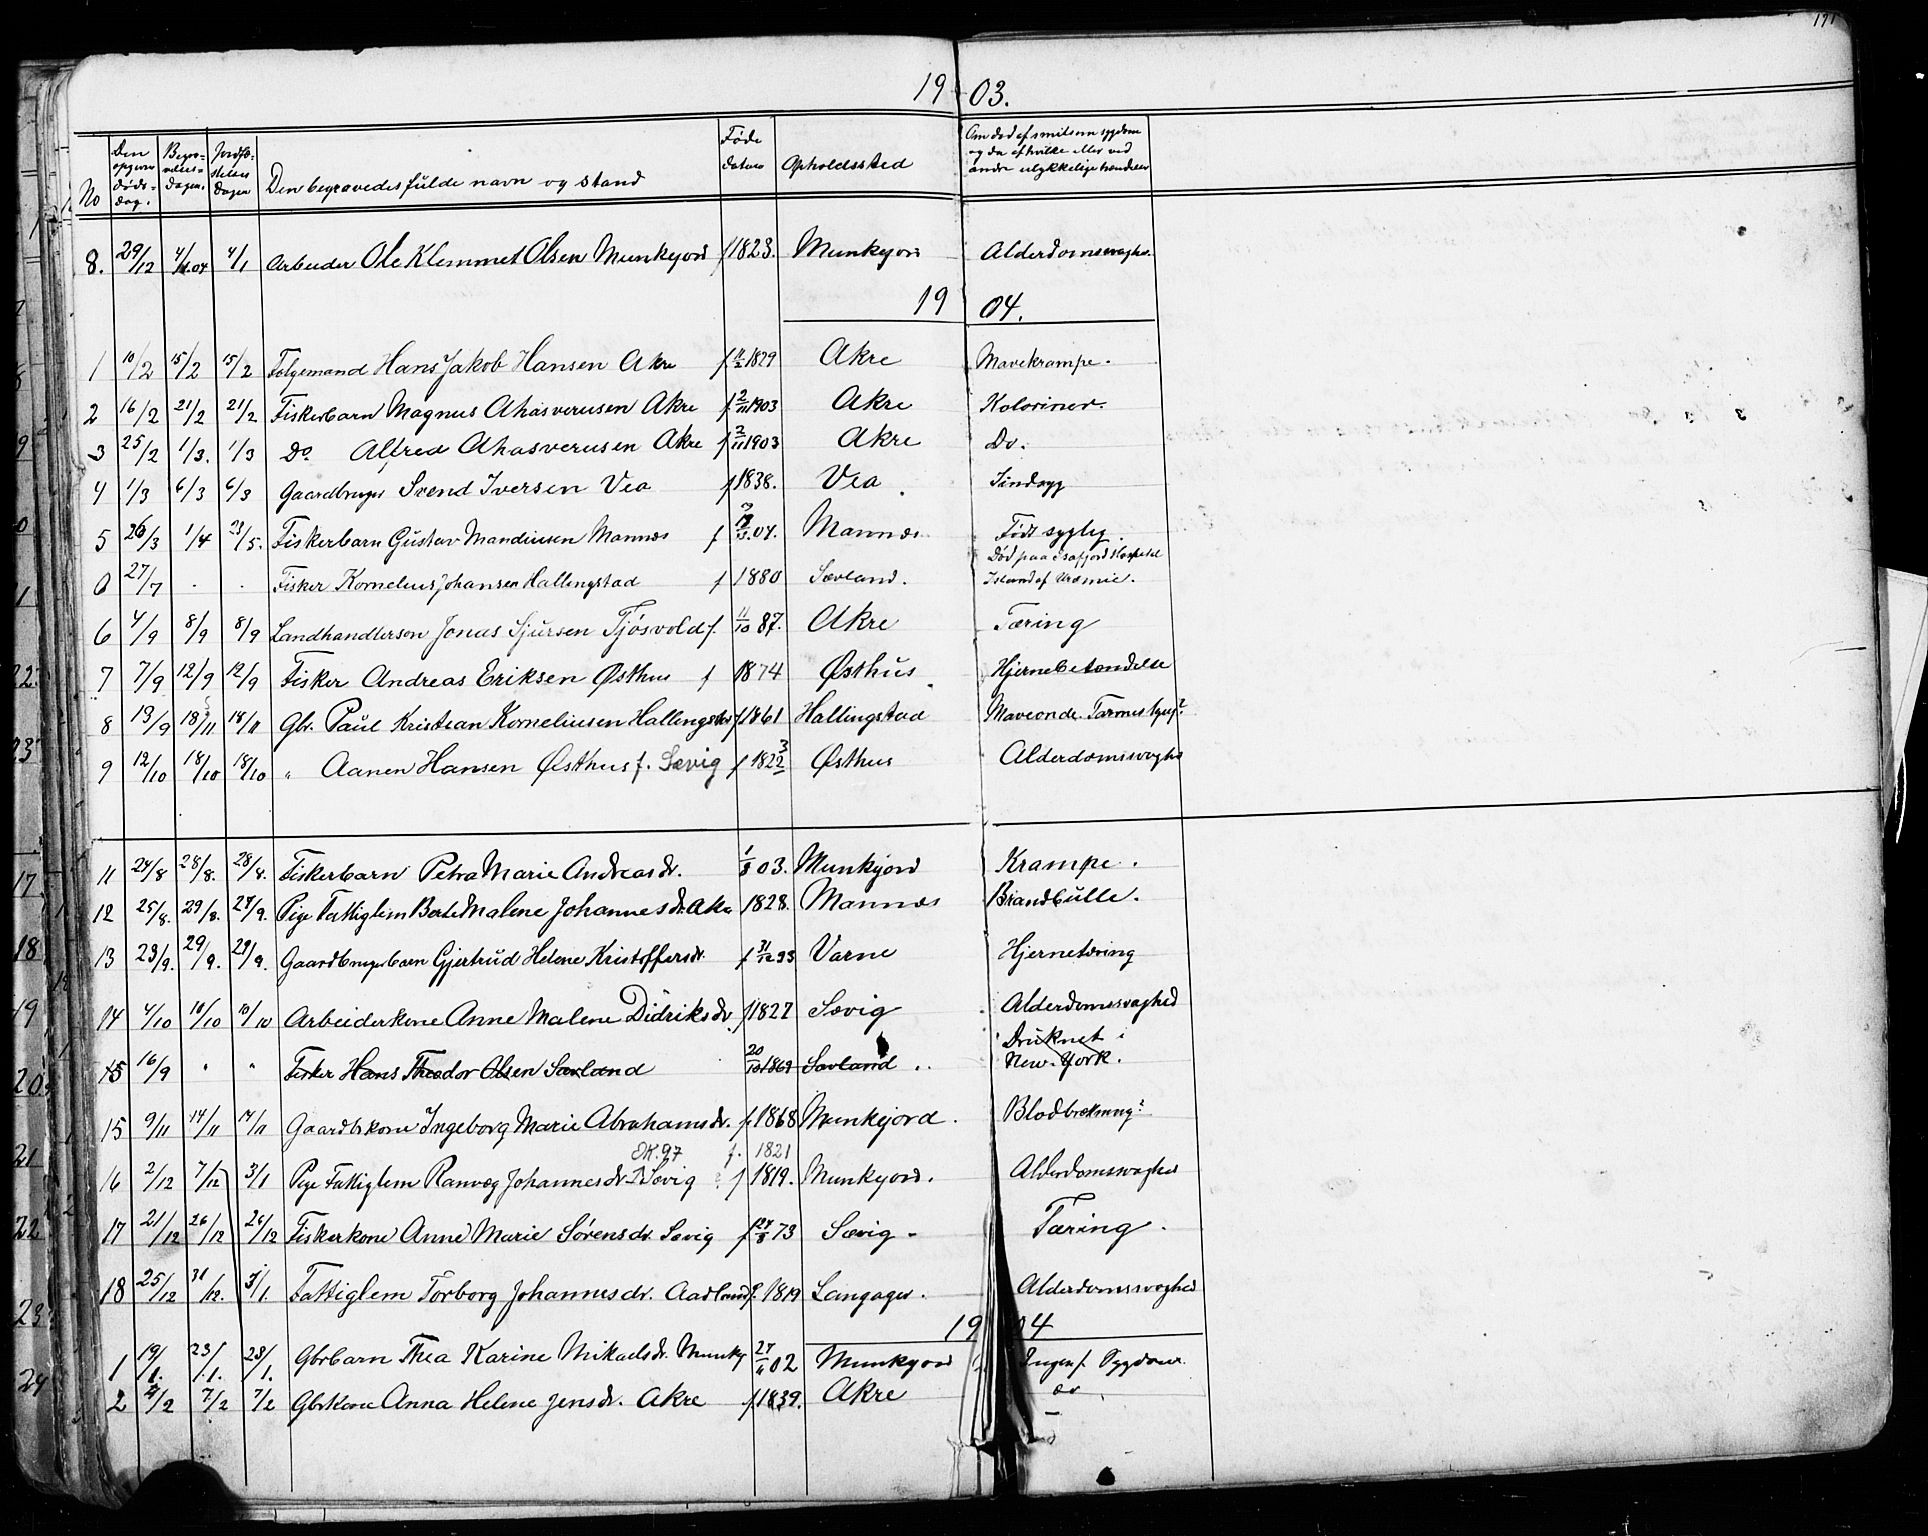 171
19 03.
No | Den opgivne døds-dag. | Begra-velses-dagen. | Jordfæ-stelses dagen | Den begravedes fulde navn og stand | Føde datum | Opholdssted | Om død af smitsom sygdom og da af hvilke eller ved andre ulykkelige hændelser
8. 29/12 4/1.04 4/1 Arbeider Ole Klemmet Olsen Munkejord f 1823. Munkejord Alderdomssvaghd.
19 04.
1 10/2 15/2 15/2 Følgemand Hans Jakob Hansen Akre f 11/2 1829 Akre Mavekrampe.
2 16/2 21/2 21/2 Fiskerbarn Magnus Ahasverusen Akre f 2/11 1903 Akre Koloriner.
3 25/2 1/3. 1/3 Do Alfred Ahasverusen Akre f 2/11 1903 Akre Do.
4 1/3 6/3 6/3 Gaardbruger Svend Iversen Vea f 1838. Vea Sindsyg
5 26/3 1/4 23/5. Fiskerbarn Gustav Mandiusen Mannes f 04. Mannes Født syglig.
6 27/7 . . Fisker Kornelius Johansen Hallingstad f 1880 Sævland. Død paa Isafjord Hospital Island af Uræmie.
6 4/9 8/9 8/9 Landhandlersøn Jonas Sjursen Tjøsvold f. 11/10 87. Akre Tæring
7 7/9 12/9 12/9 Fisker Andreas Eriksen Østhus f 1874 Østhus Hjernebetændelse
8 13/9 18/11 18/11 Gbr. Paul Kristian Korneliusen Hallingstad f 1861 Hallingstad Maveonde. Tarmestyg?
9 12/10 18/10 18/10 " Aanen Hansen Østhus f. Sævig f 1822 3 Østhus Alderdomssvaghd
11 24/8 28/8. 28/8. Fiskerbarn Petra Marie Andreasdr. 1/8 03. Munkejord Krampe.
12 25/8. 29/8. 29/9. Pige Fattiglem Berte Malene Johannesdr. Akre 1828. Mannes Brandbulle.
13 23/9. 29/9. 29/9. Gaardbrugerbarn Gjertrud Helene Kristoffersdr. f 31/12 93 Varne Hjernetæring
14 4/10 10/10 10/10 Arbeiderkone Anne Malene Didriksdr. f 1827 Sævig Alderdomssvaghed
15 16/9 " " Fisker Hans Theodor Olsen Sævland 20/10 1869 Sævland .. Druknet i New-York.
15 9/11 14/11 14/11 Gaardbrkone Ingeborg Marie Abrahamsdr. f. 1868 Munkejord. Blodbrækning?
DK.97 f. 1821
16 2/12 7/12 3/1 Pige Fattiglem Ranveg Johannesdr. Sævig f 1819. Munkejord. Alderdomssvaghed
17 21/12 26/12 26/12 Fiskerkone Anne Marie Sørensdr. Sævig f 27/8 73 Sævig - Tæring.
18 25/12 31/12. 3/1. Fattiglem Torborg Johannesdr. Aadland f. 1819 Langager. Alderdomssvaghed
19 04
1 19/1. 23/1. 23/1. Gbrbarn Thea Karine Mikaelsdr. Munkj 27/6 02 Munkejord Ingen f. Sygdom.
2 2/2 7/2 7/2 Gbrkone Anna Helene Jensdr. Akre f. 1839. Akre do